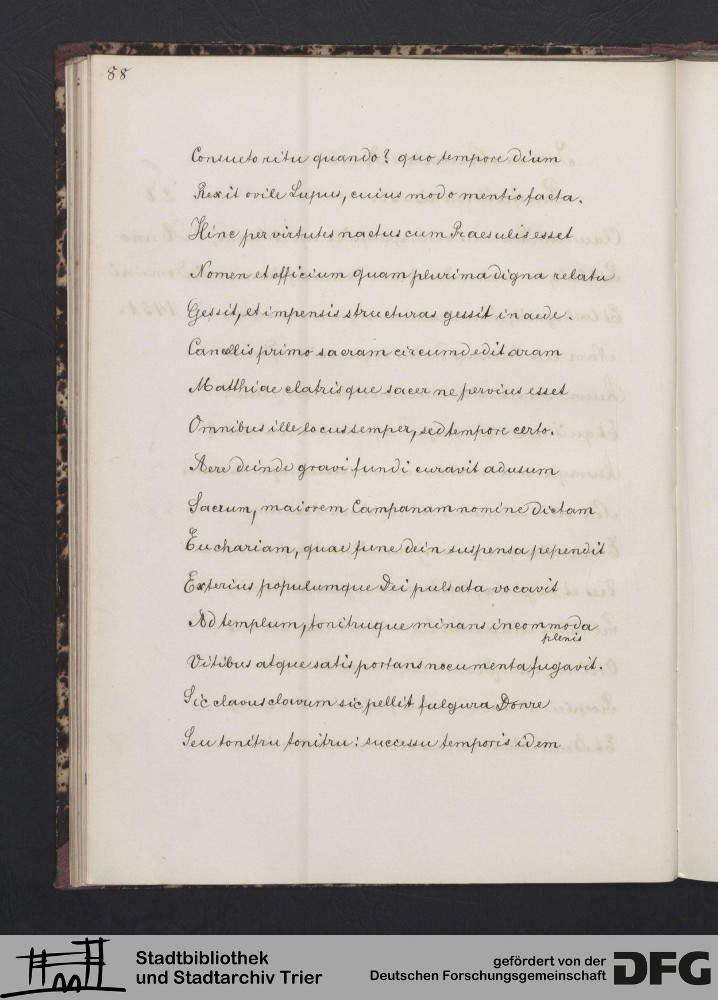 88
Consueto ritu quando? quo tempore dium
Rexit ovile Lupus, cuius modo mentio facta.
Hinc per virtutes nactus cum Praesulis esset
Nomen et officium quam plurima digna relatu
Gessit, et impensis structuras gessit in aede.
Cancellis primo sacram circumdedit aram
Matthiae clatrisque sacer ne pervius esset
Omnibus ille locus semper, sed tempore certo.
Aere deinde gravi fundi curavit ad usum
Sacrum, maiorem Campanam nomine dictam
Euchariam, quae fune dein suspensa pependit
Exterius populumque Dei pulsata vocavit
Ad templum, tonitruque minans incommoda
plenis
Vitibus atque satis portans nocumenta fugavit.
Sic clavus clavum sic pellit fulgura
Seu tonitru tonitru: successu temporis idem
Stadtbibliothek
und Stadtarchiv Trier
gefördert von der
Deutschen Forschungsgemeinschaft
DFG